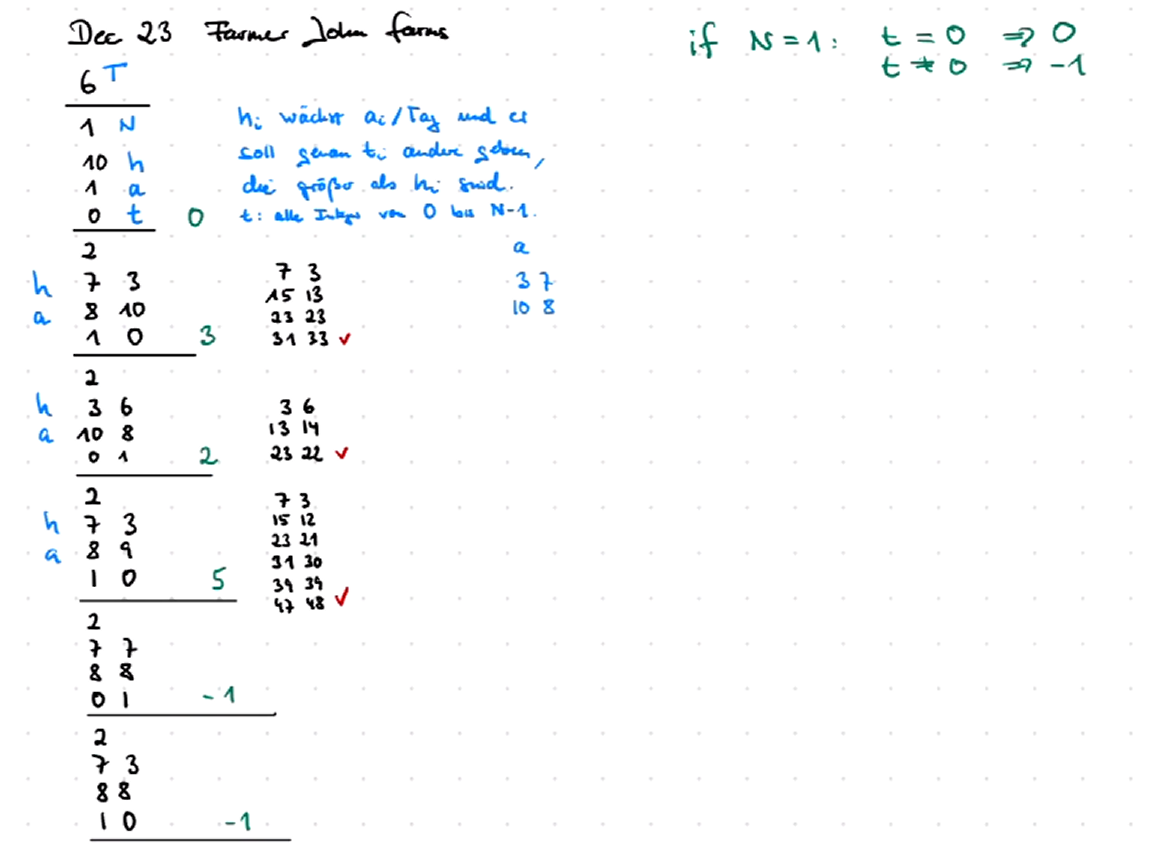 Dec 23 Farmer John farms
if N = 1 : t = 0 ⇒ 0
t ≠ 0 ⇒ -1
6 T
1 N
10 h
1 a
0 t 0
hi wächst ai/Tag und es
soll genau ti andere geben,
die größer als hi sind.
t: alle Integer von 0 bis N-1.
2
h 7 3
a 8 10
1 0 3
7 3
15 13
23 23
31 33 ✓
a
3 7
10 8
2
h 3 6
a 10 8
0 1 2
3 6
13 14
23 22 ✓
2
h 7 3
a 8 9
1 0 5
7 3
15 12
23 21
31 30
39 39
47 48 ✓
2
7 7
8 8
0 1 -1
2
7 3
8 8
1 0 -1